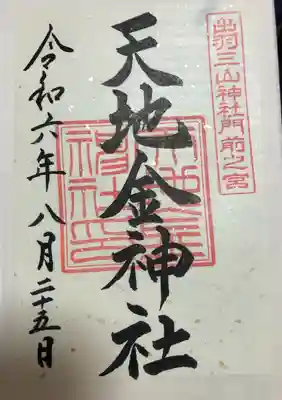 出羽三山神社門前之宮
天地金神社
令和六年八月二十五日